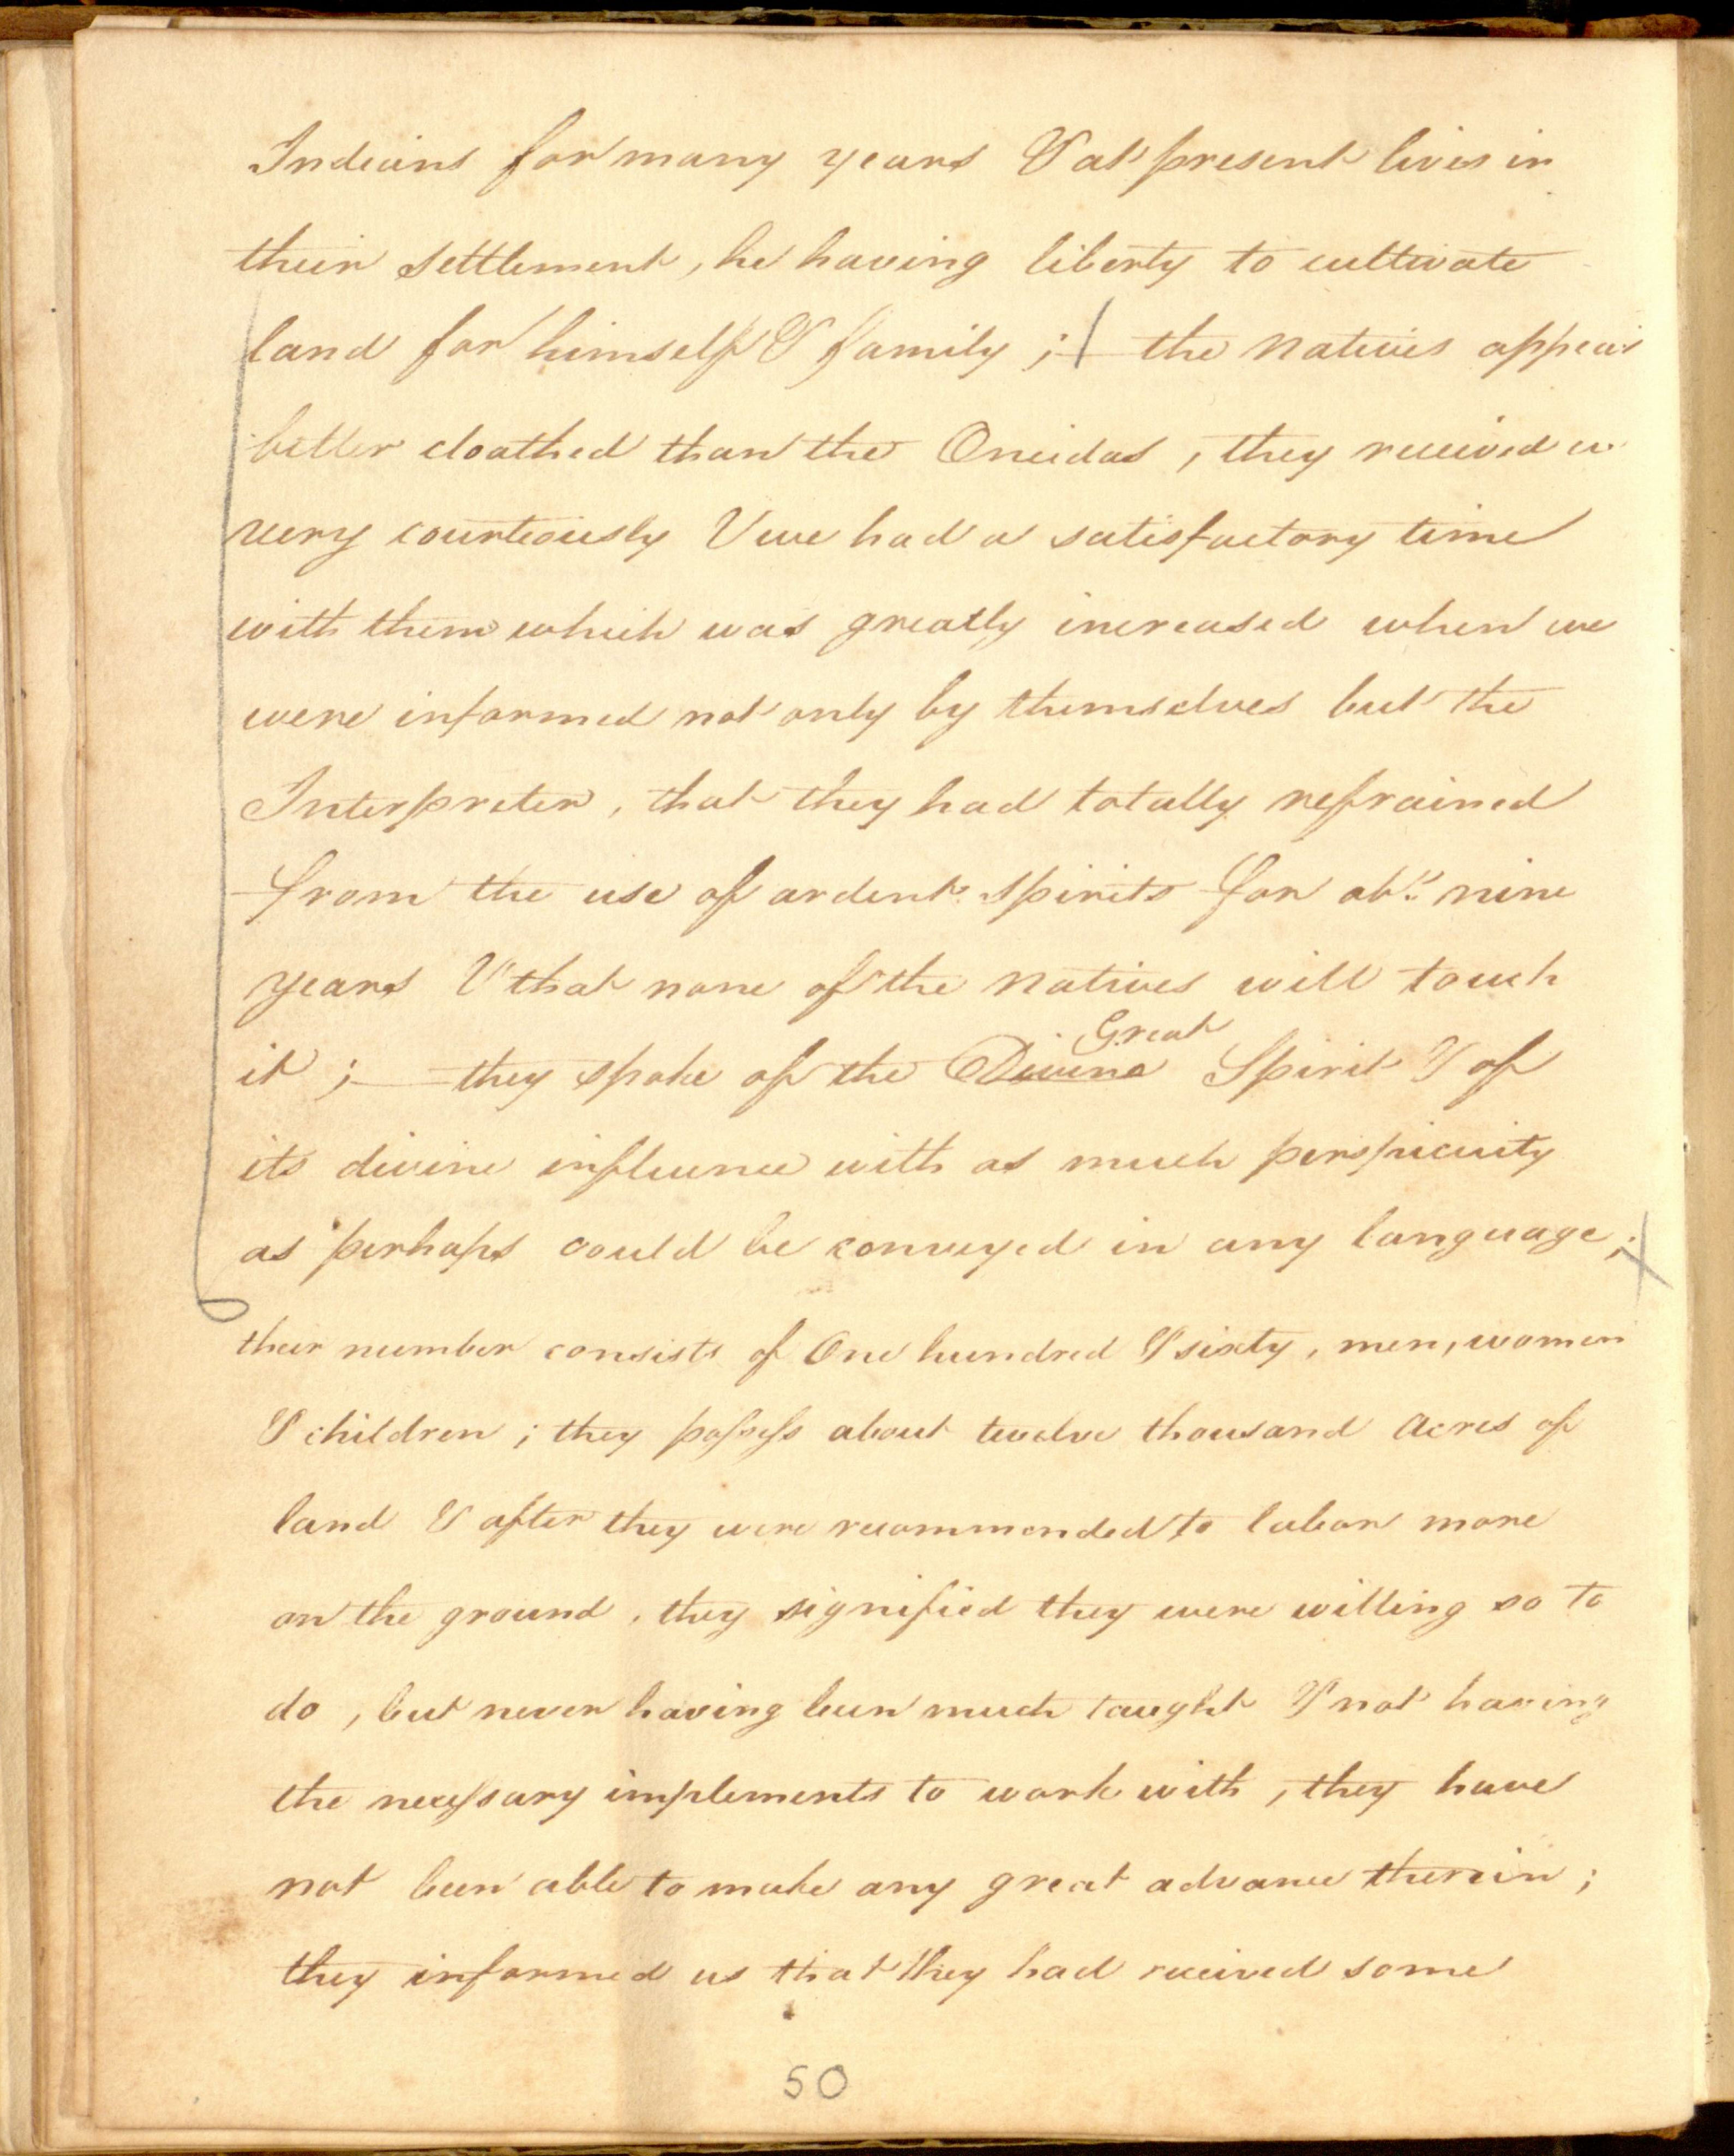 Indians for many years & at present lives in
their settlement, he having liberty to cultivate
land for himself & family ; — the natives appear
better cloathed than the Oneidas, they received us
very courteously & we had a satisfactory time
with them which was greatly increased when we
were informed not only by themselves but the
Interpreter, that they had totally refrained
from the use of ardent spirits for abt. nine
years & that none of the natives will touch
it ; — they spoke of the Divine Great Spirit & of
its divine influence with as much perspicuity
as perhaps could be conveyed in any language ;
their number consists of One hundred & sixty, men, women
& children ; they possess about twelve thousand Acres of
land & after they were recommended to labor more
on the ground, they signified they were willing so to
do, but never having been much taught & not having
the necessary implements to work with, they have
not been able to make any great advance therein ;
they informed us that they had received some
50